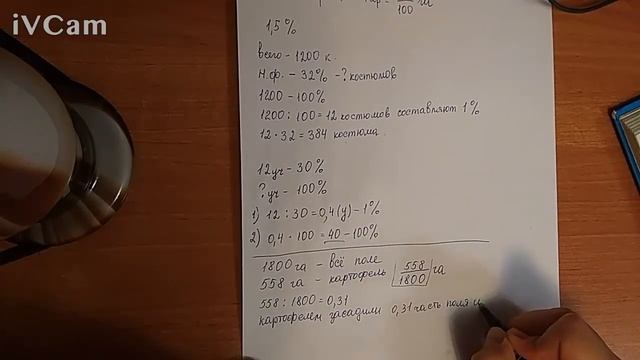 iVCam
100
1,5%
всего – 1200 к.
н.ф. – 32% – ? костюмов
1200 – 100%
1200 : 100 = 12 костюмов составляют 1%
12 · 32 = 384 костюма.
12 уч – 30%
? уч – 100%
1) 12 : 30 = 0,4 (у) – 1%
2) 0,4 · 100 = 40 – 100%
1800 га – всё поле
558 га – картофель 558/1800 га
558 : 1800 = 0,31
картофелем засадили 0,31 часть поля и